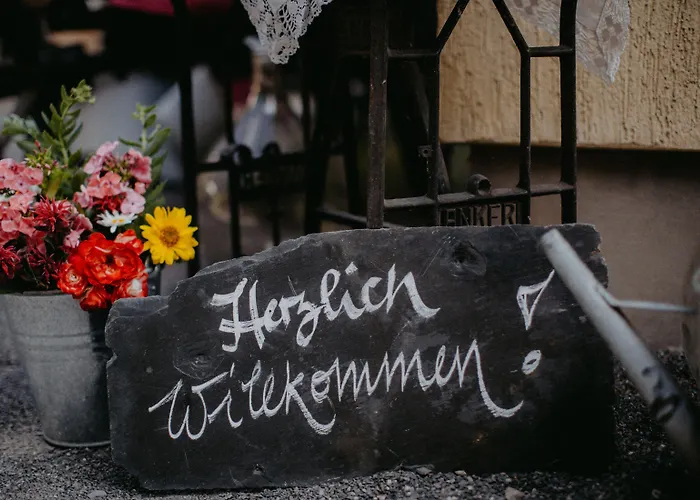 ENKERL
Herzlich
Willkommen!